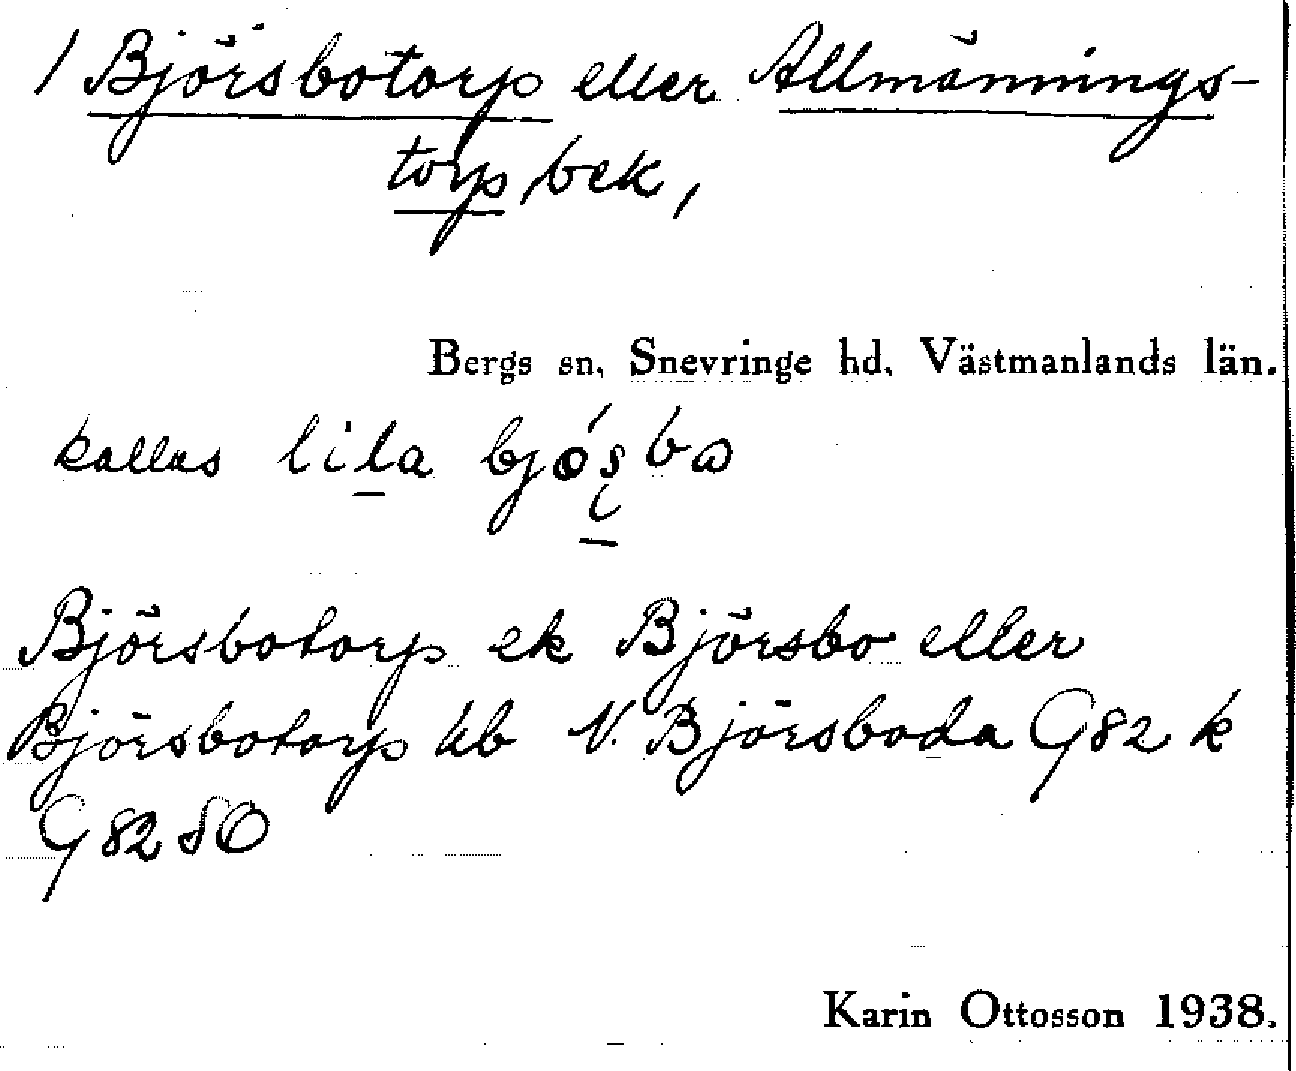 / Björsbotorp eller Allmännings-
torp, bek,
Bergs sn, Snevringe hd, Västmanlands län.
kallas lila bjós̨ba
Björsbotorp ek Björsbo eller
Björsbotorp hb N. Björsboda G82 k
G82 SO
Karin Ottosson 1938.